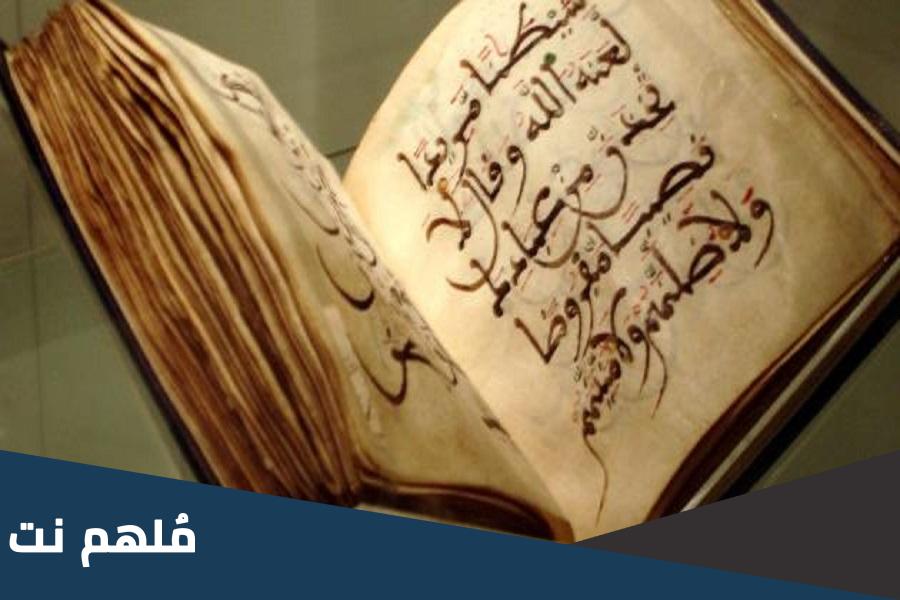 شيطنا مريدا
لعنه الله وقال لا
تخذن من عبادك
نصيبا مفروضا
ولاضلنهم ولا
منينهم
مُلهم نت